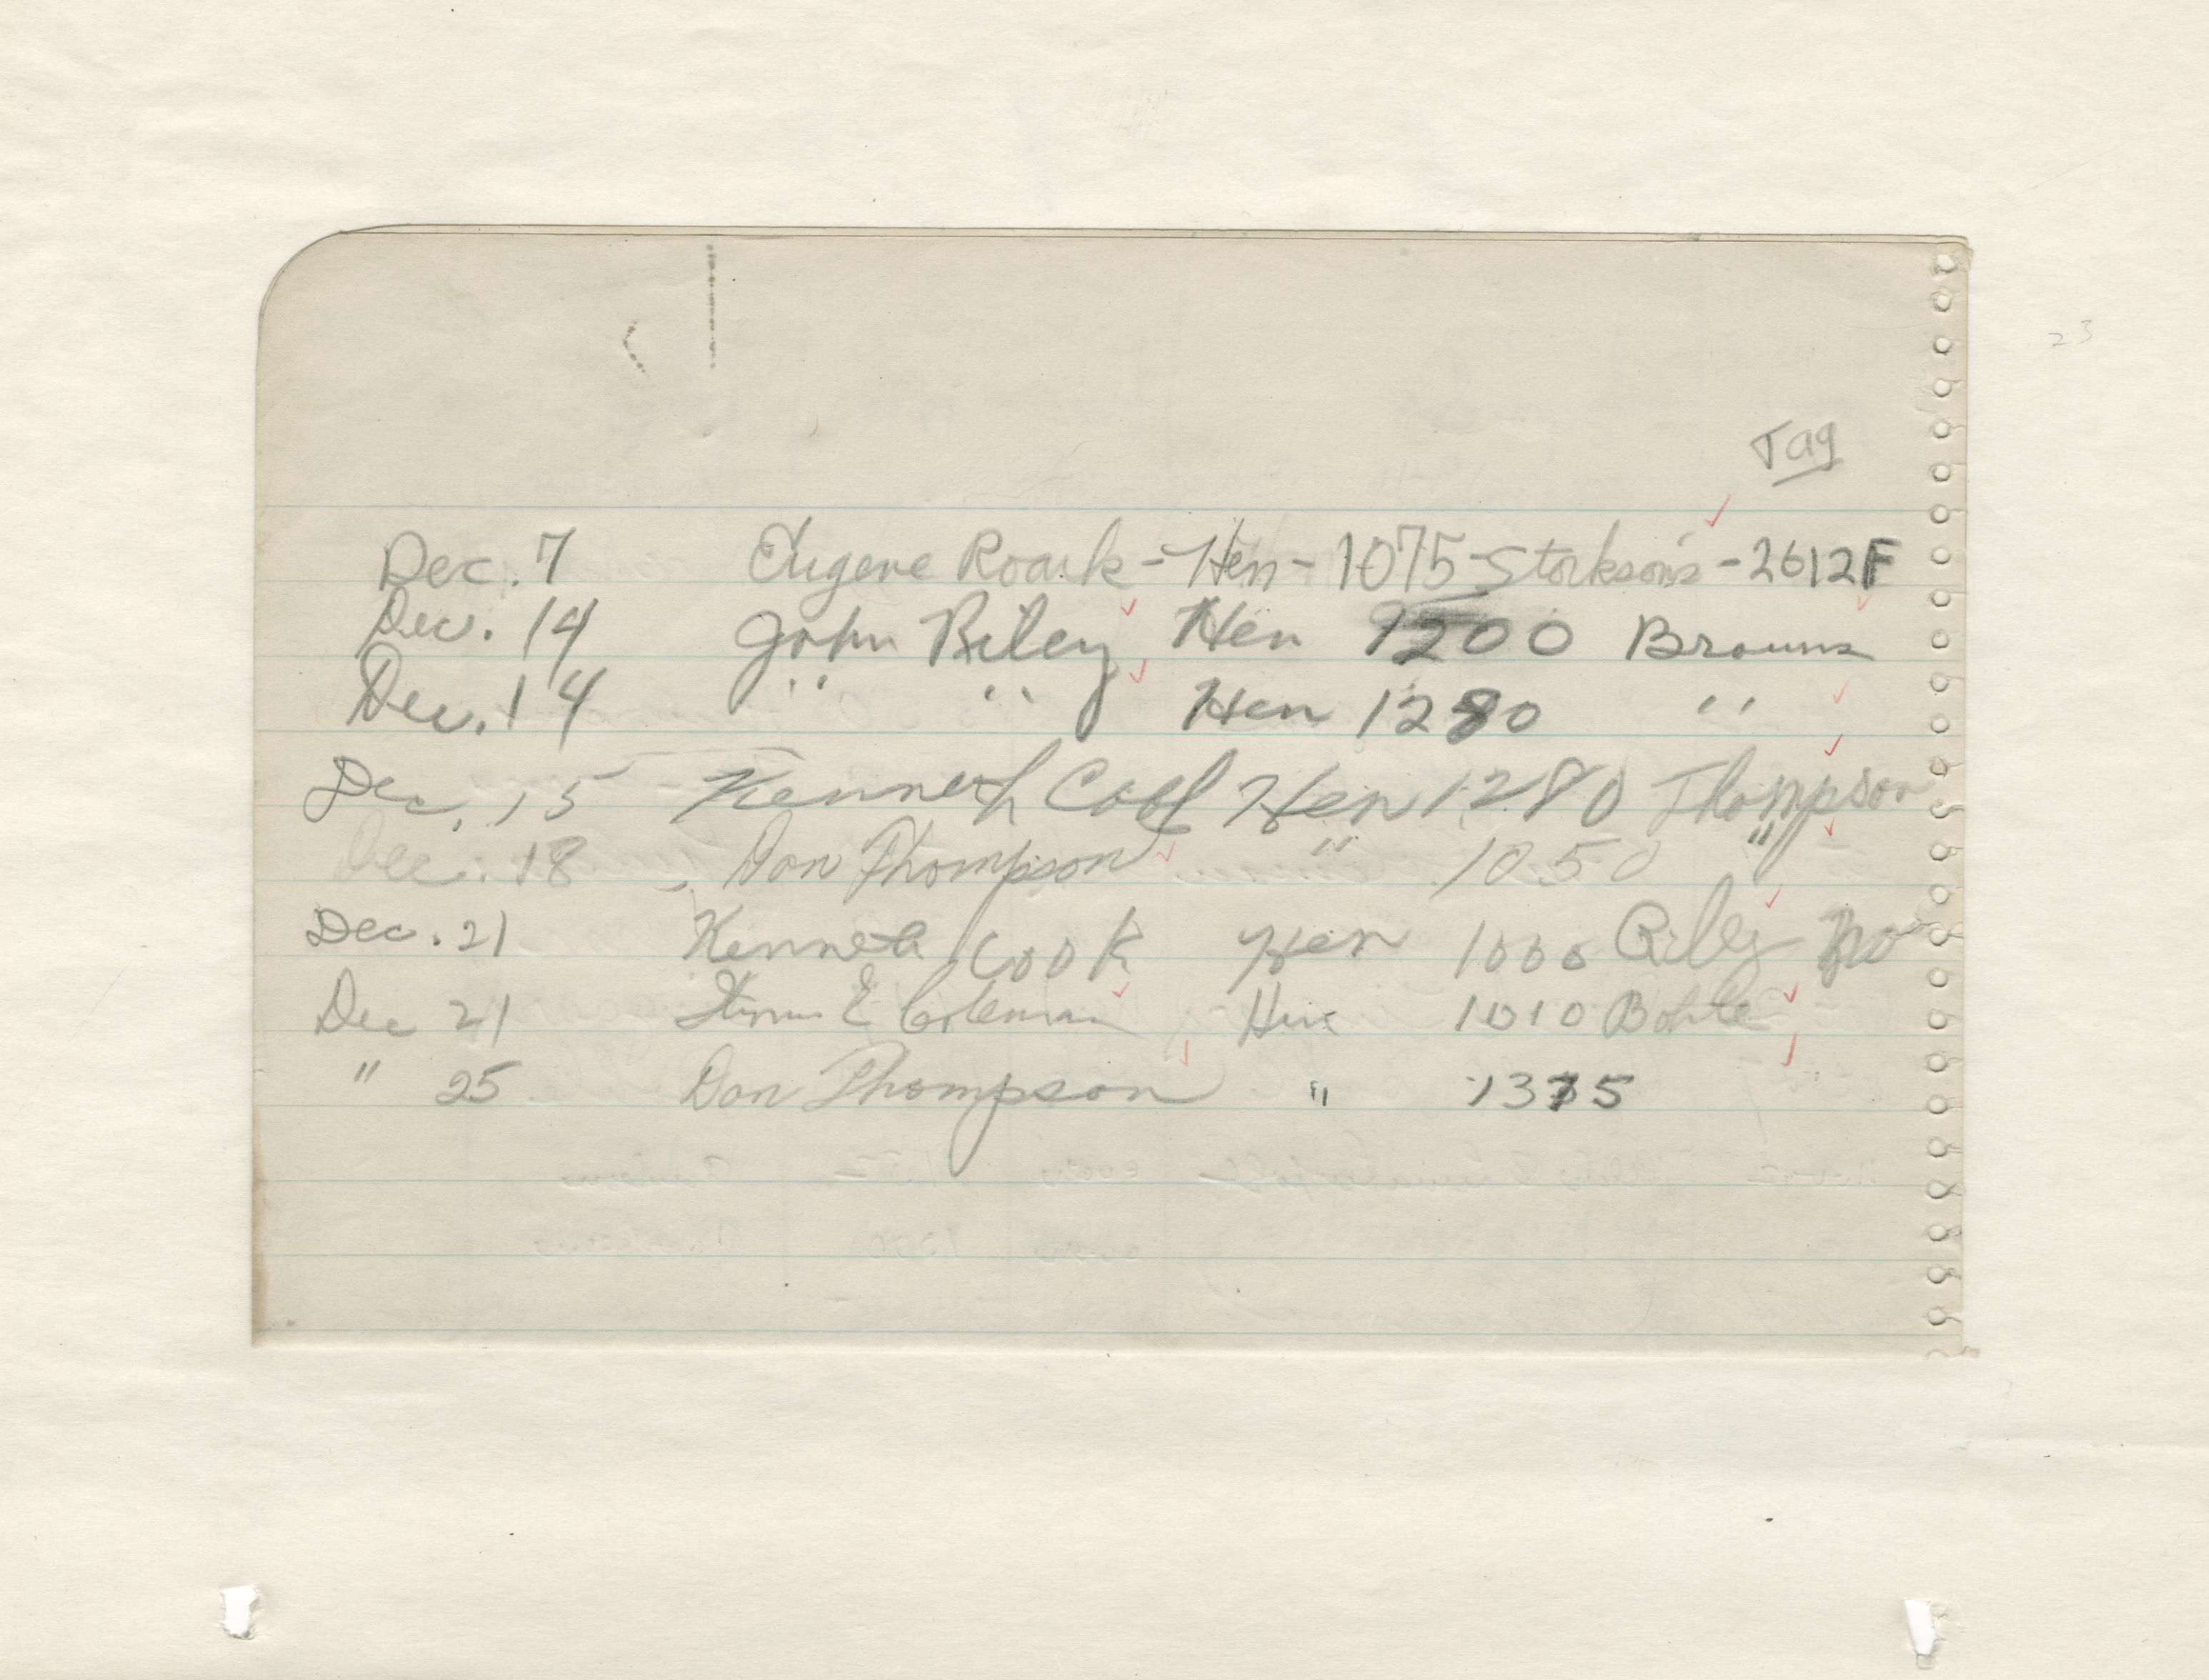 23
Tag
Dec. 7 Eugene Roark - Hen - 1075 - Storkson's - 2612F
Dec. 14 John Riley Hen 1200 Browns
Dec. 14 " " Hen 1280 "
Dec. 15 Kenneth Cook Hen 1280 Thompson
Dec. 18 Don Thompson " 1050 "
Dec. 21 Kenneth Cook Hen 1000 Riley no
Dec 21 E Coleman Hen 1010
" 25 Don Thompson " 1375